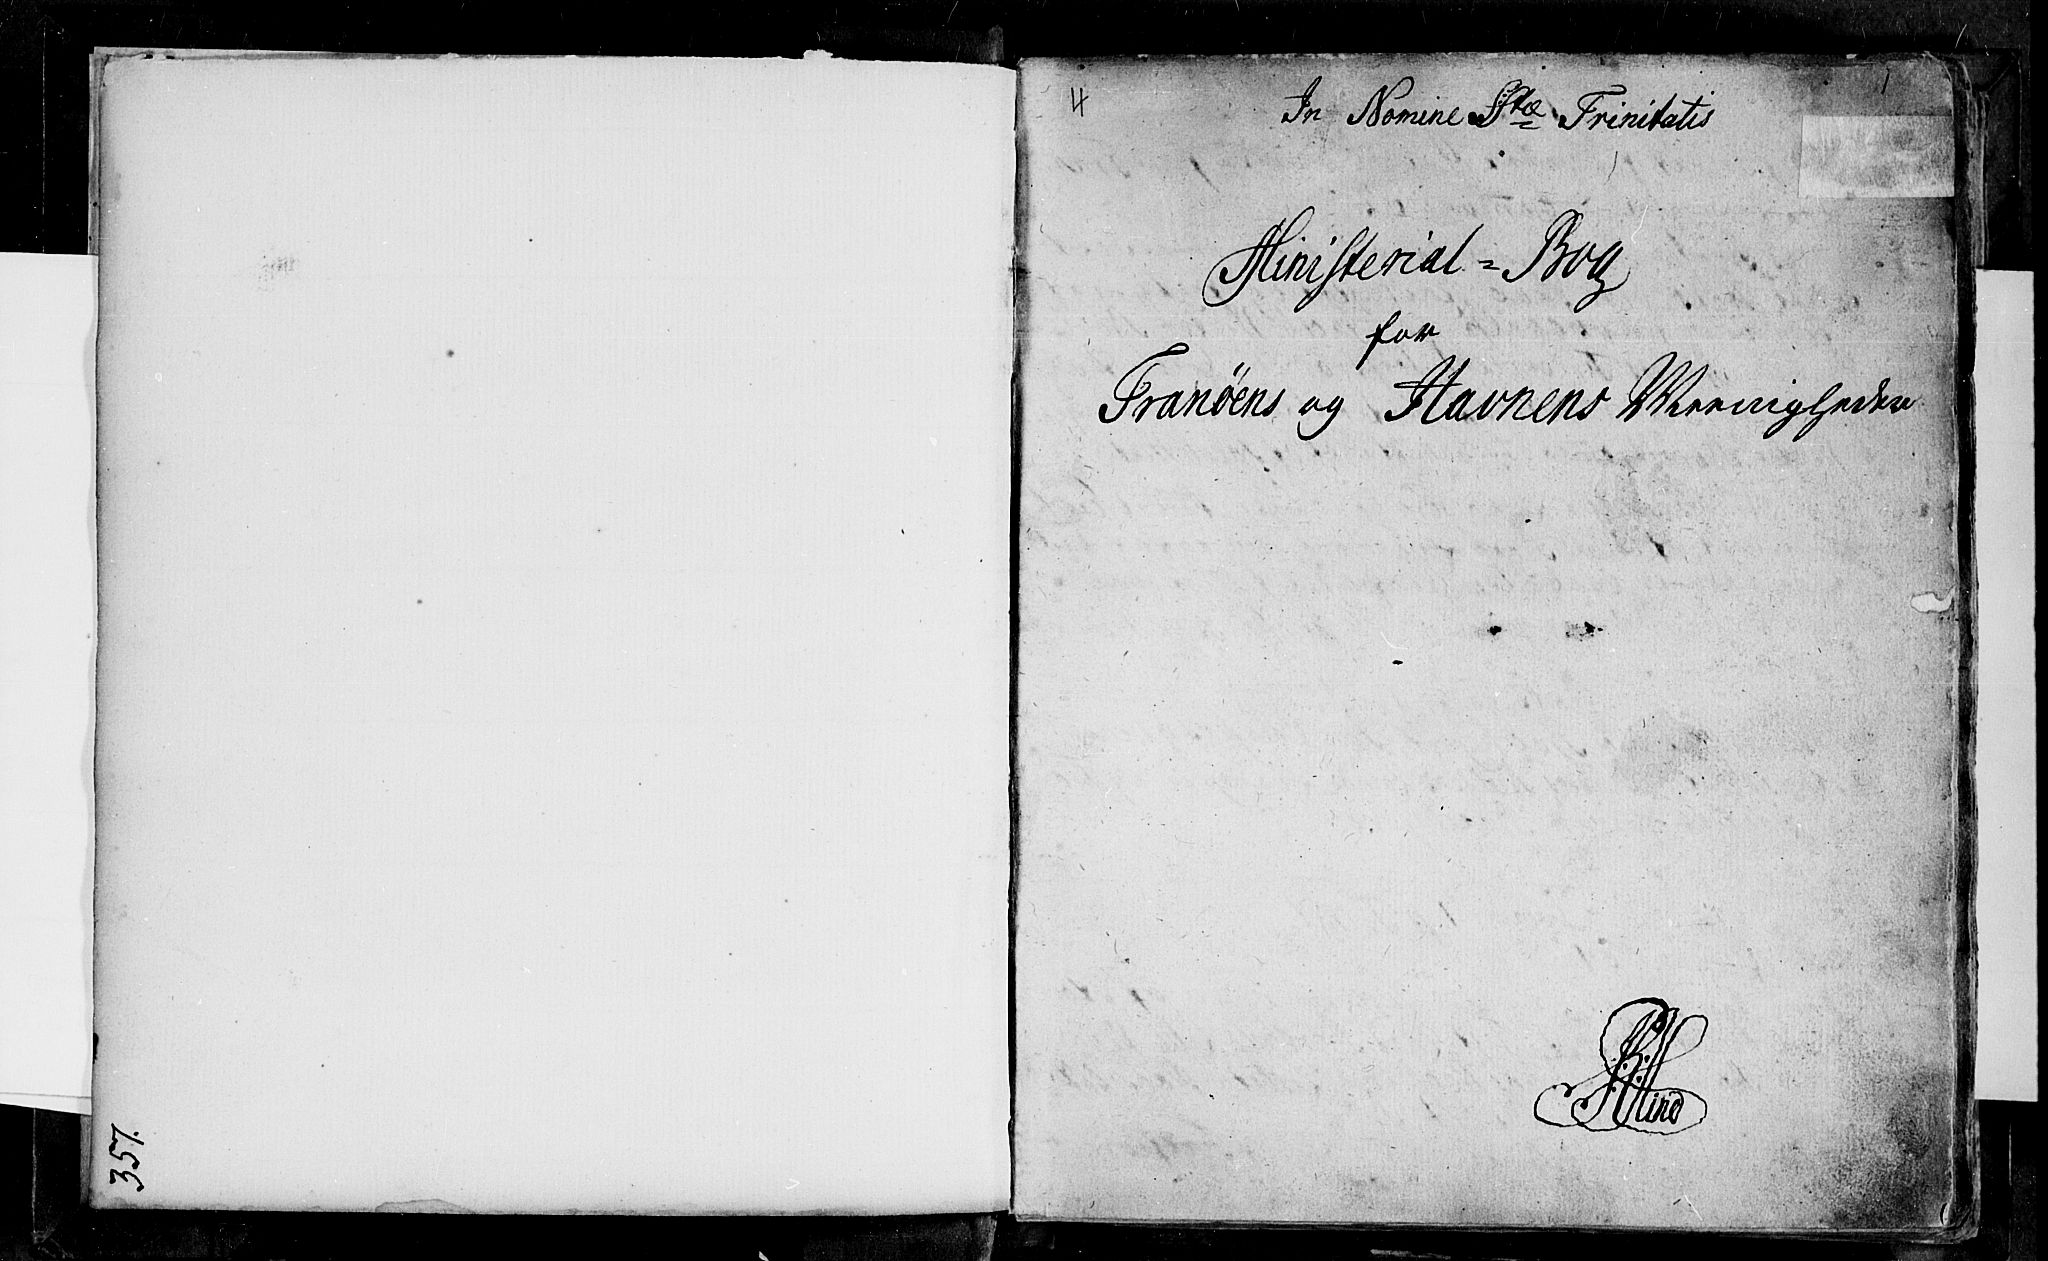 357.
4
1
In Nomine Stæ Trinitatis
Ministerial-Bog
for
Tranöens og Havnens Meenigheder
Hind